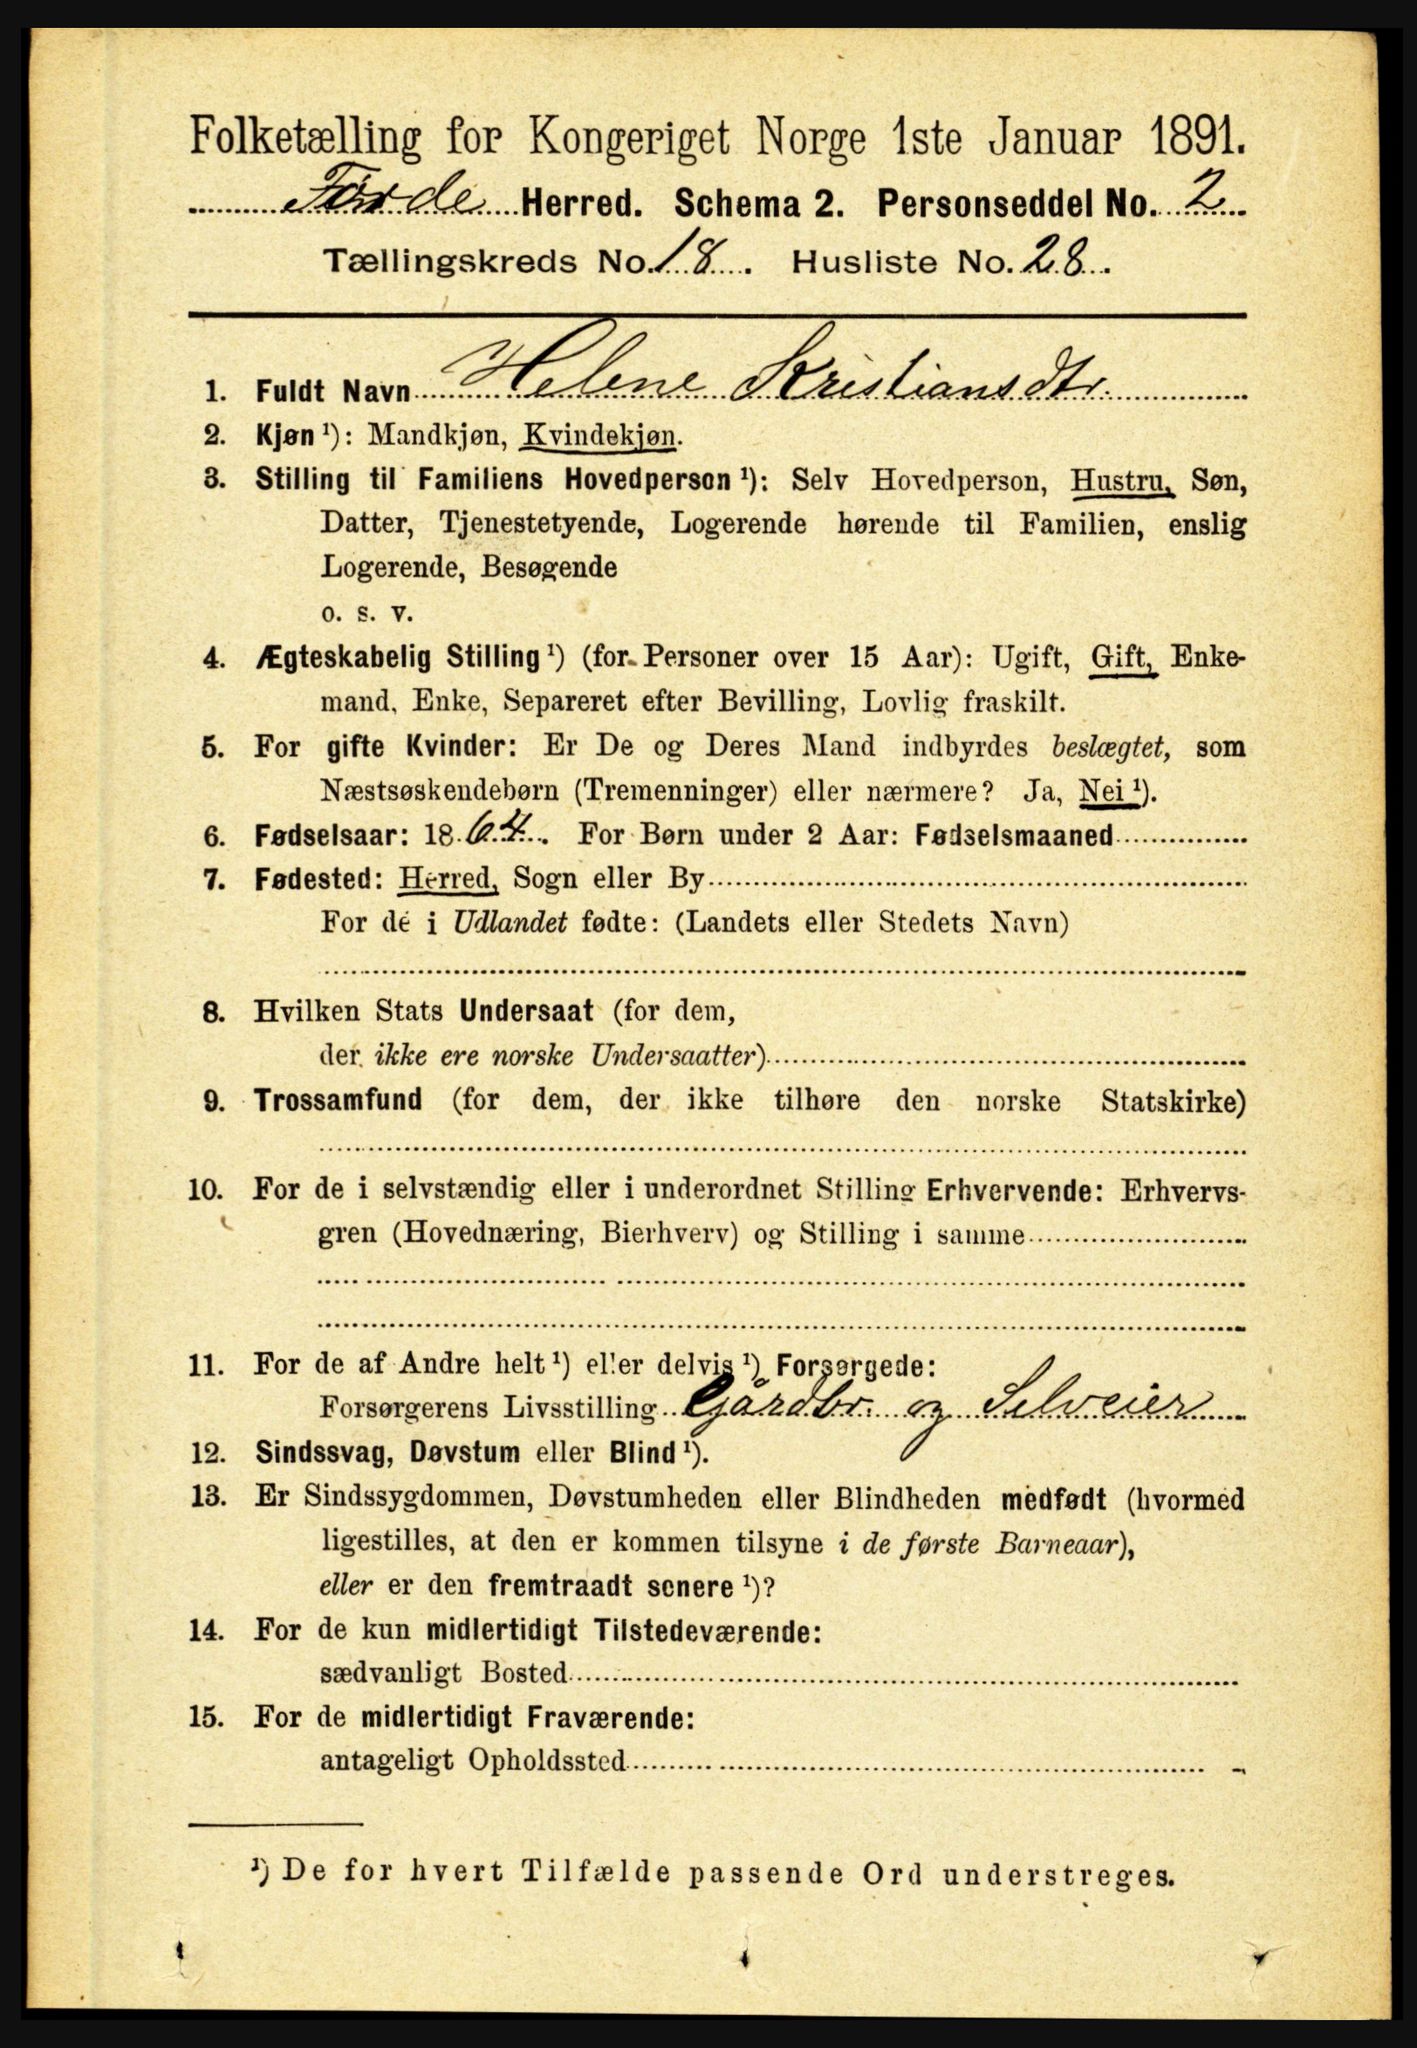 Folketælling for Kongeriget Norge 1ste Januar 1891.
Førde Herred. Schema 2. Personseddel No. 2
Tællingskreds No. 18. Husliste No. 28.
1. Fuldt Navn Helene Kristiansdtr.
2. Kjøn ¹): Mandkjøn, Kvindekjøn.
3. Stilling til Familiens Hovedperson ¹): Selv Hovedperson, Hustru, Søn,
Datter, Tjenestetyende, Logerende hørende til Familien, enslig
Logerende, Besøgende
o. s. v.
4. Ægteskabelig Stilling ¹) (for Personer over 15 Aar): Ugift, Gift, Enke-
mand, Enke, Separeret efter Bevilling, Lovlig fraskilt.
5. For gifte Kvinder: Er De og Deres Mand indbyrdes beslægtet, som
Næstsøskendebørn (Tremenninger) eller nærmere? Ja, Nei ¹).
6. Fødselsaar: 1864. For Børn under 2 Aar: Fødselsmaaned
7. Fødested: Herred, Sogn eller By
For de i Udlandet fødte: (Landets eller Stedets Navn)
8. Hvilken Stats Undersaat (for dem,
der ikke ere norske Undersaatter)
9. Trossamfund (for dem, der ikke tilhøre den norske Statskirke)
10. For de i selvstændig eller i underordnet Stilling Erhvervende: Erhvervs-
gren (Hovednæring, Bierhverv) og Stilling i samme
11. For de af Andre helt ¹) eller delvis ¹) Forsørgede:
Forsørgerens Livsstilling Gårdbr. og Selveier
12. Sindssvag, Døvstum eller Blind ¹).
13. Er Sindssygdommen, Døvstumheden eller Blindheden medfødt (hvormed
ligestilles, at den er kommen tilsyne i de første Barneaar),
eller er den fremtraadt senere ¹)?
14. For de kun midlertidigt Tilstedeværende:
sædvanligt Bosted
15. For de midlertidigt Fraværende:
antageligt Opholdssted
¹) De for hvert Tilfælde passende Ord understreges.